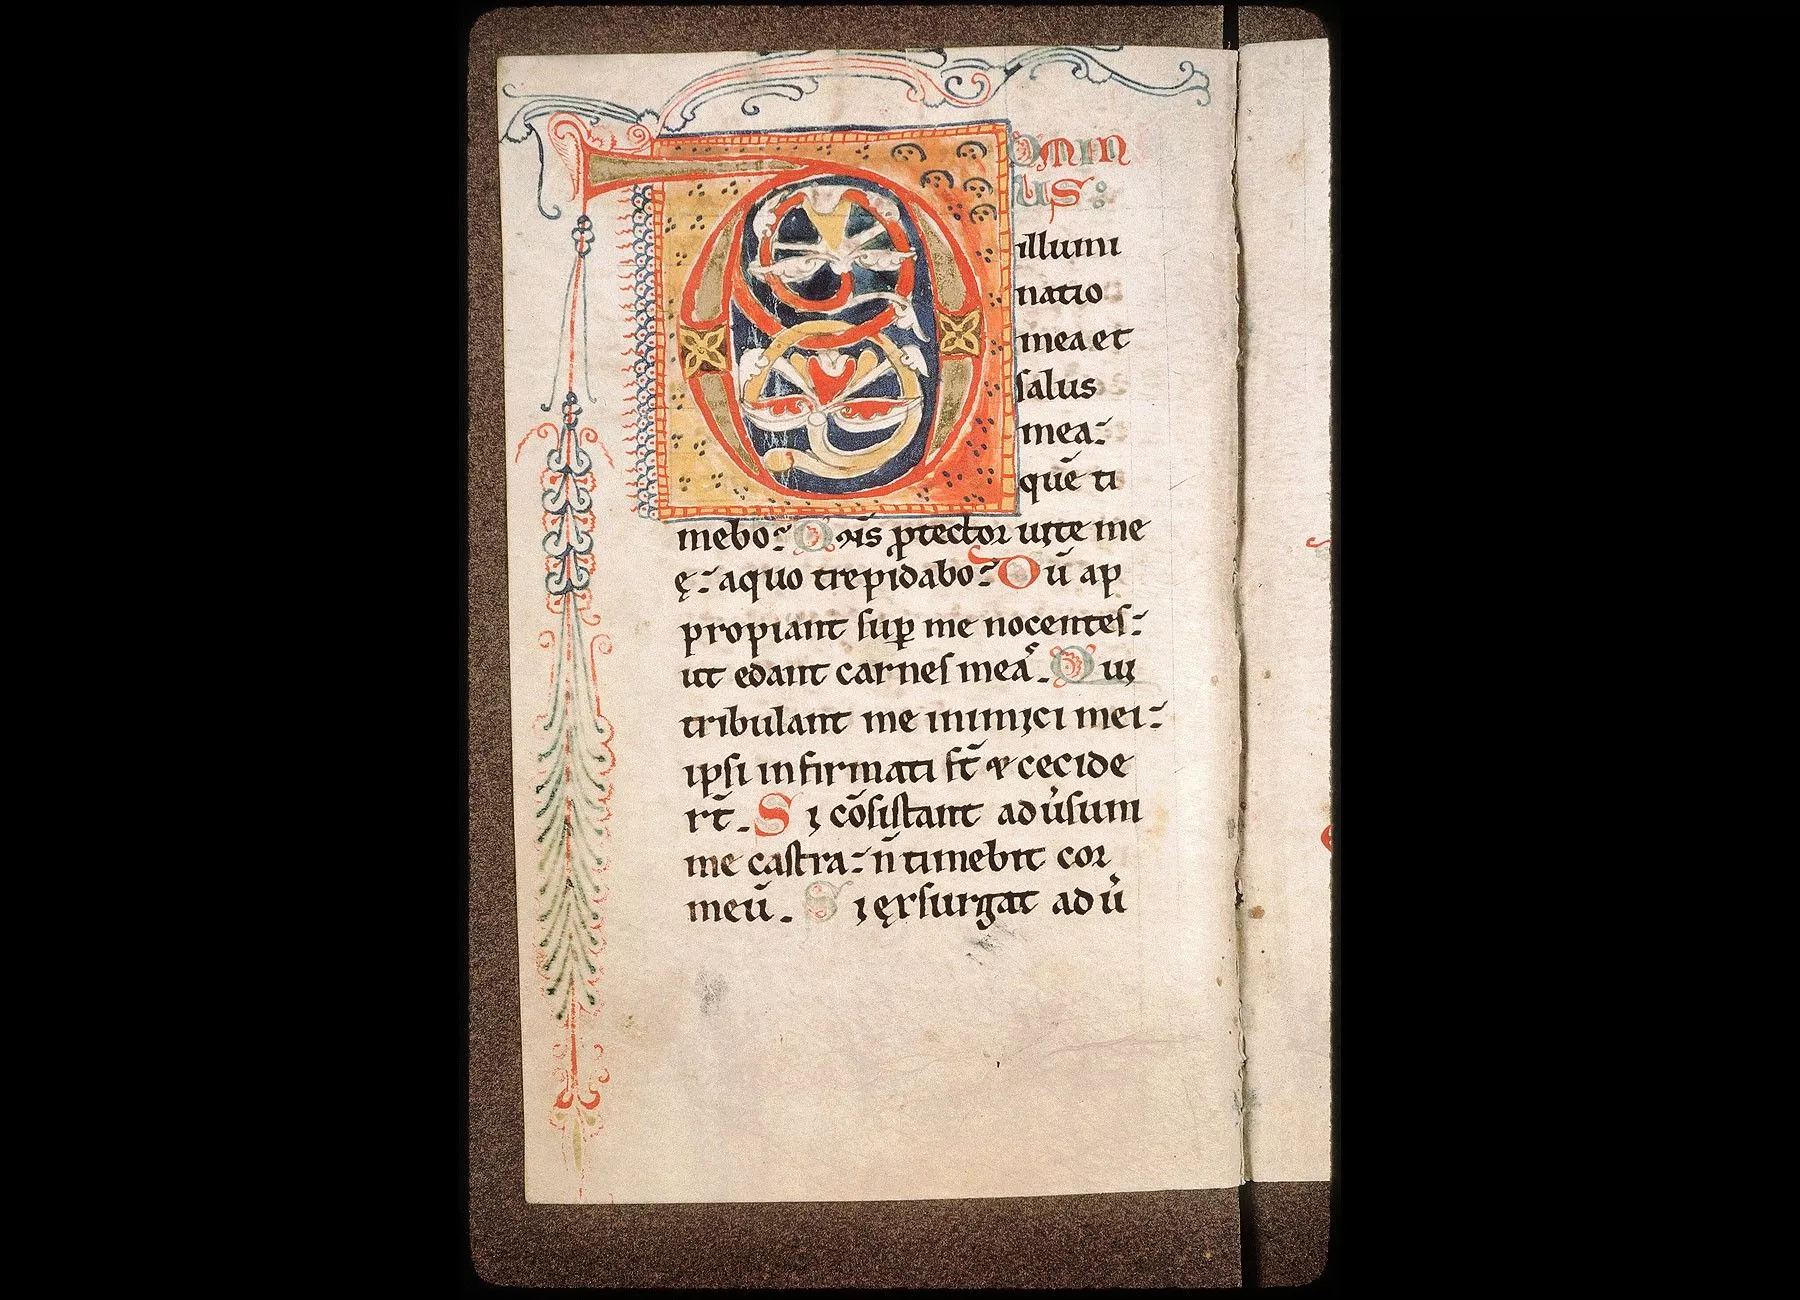 DOMIN
US:
illumi
natio
mea et
salus
mea:
quē ti
mebo: Dn̄s ꝓtector uite me
ę: aquo trepidabo: Dū ap
propiant suꝑ me nocentes:
ut edant carnes meaˢ. Qui
tribulant me inimici mei:
ipsi infirmati st̄ & cecide
rt̄. Si cōsistant adu̓sum
me castra: n̄ timebit cor
meū. Si exsurgat adu̓